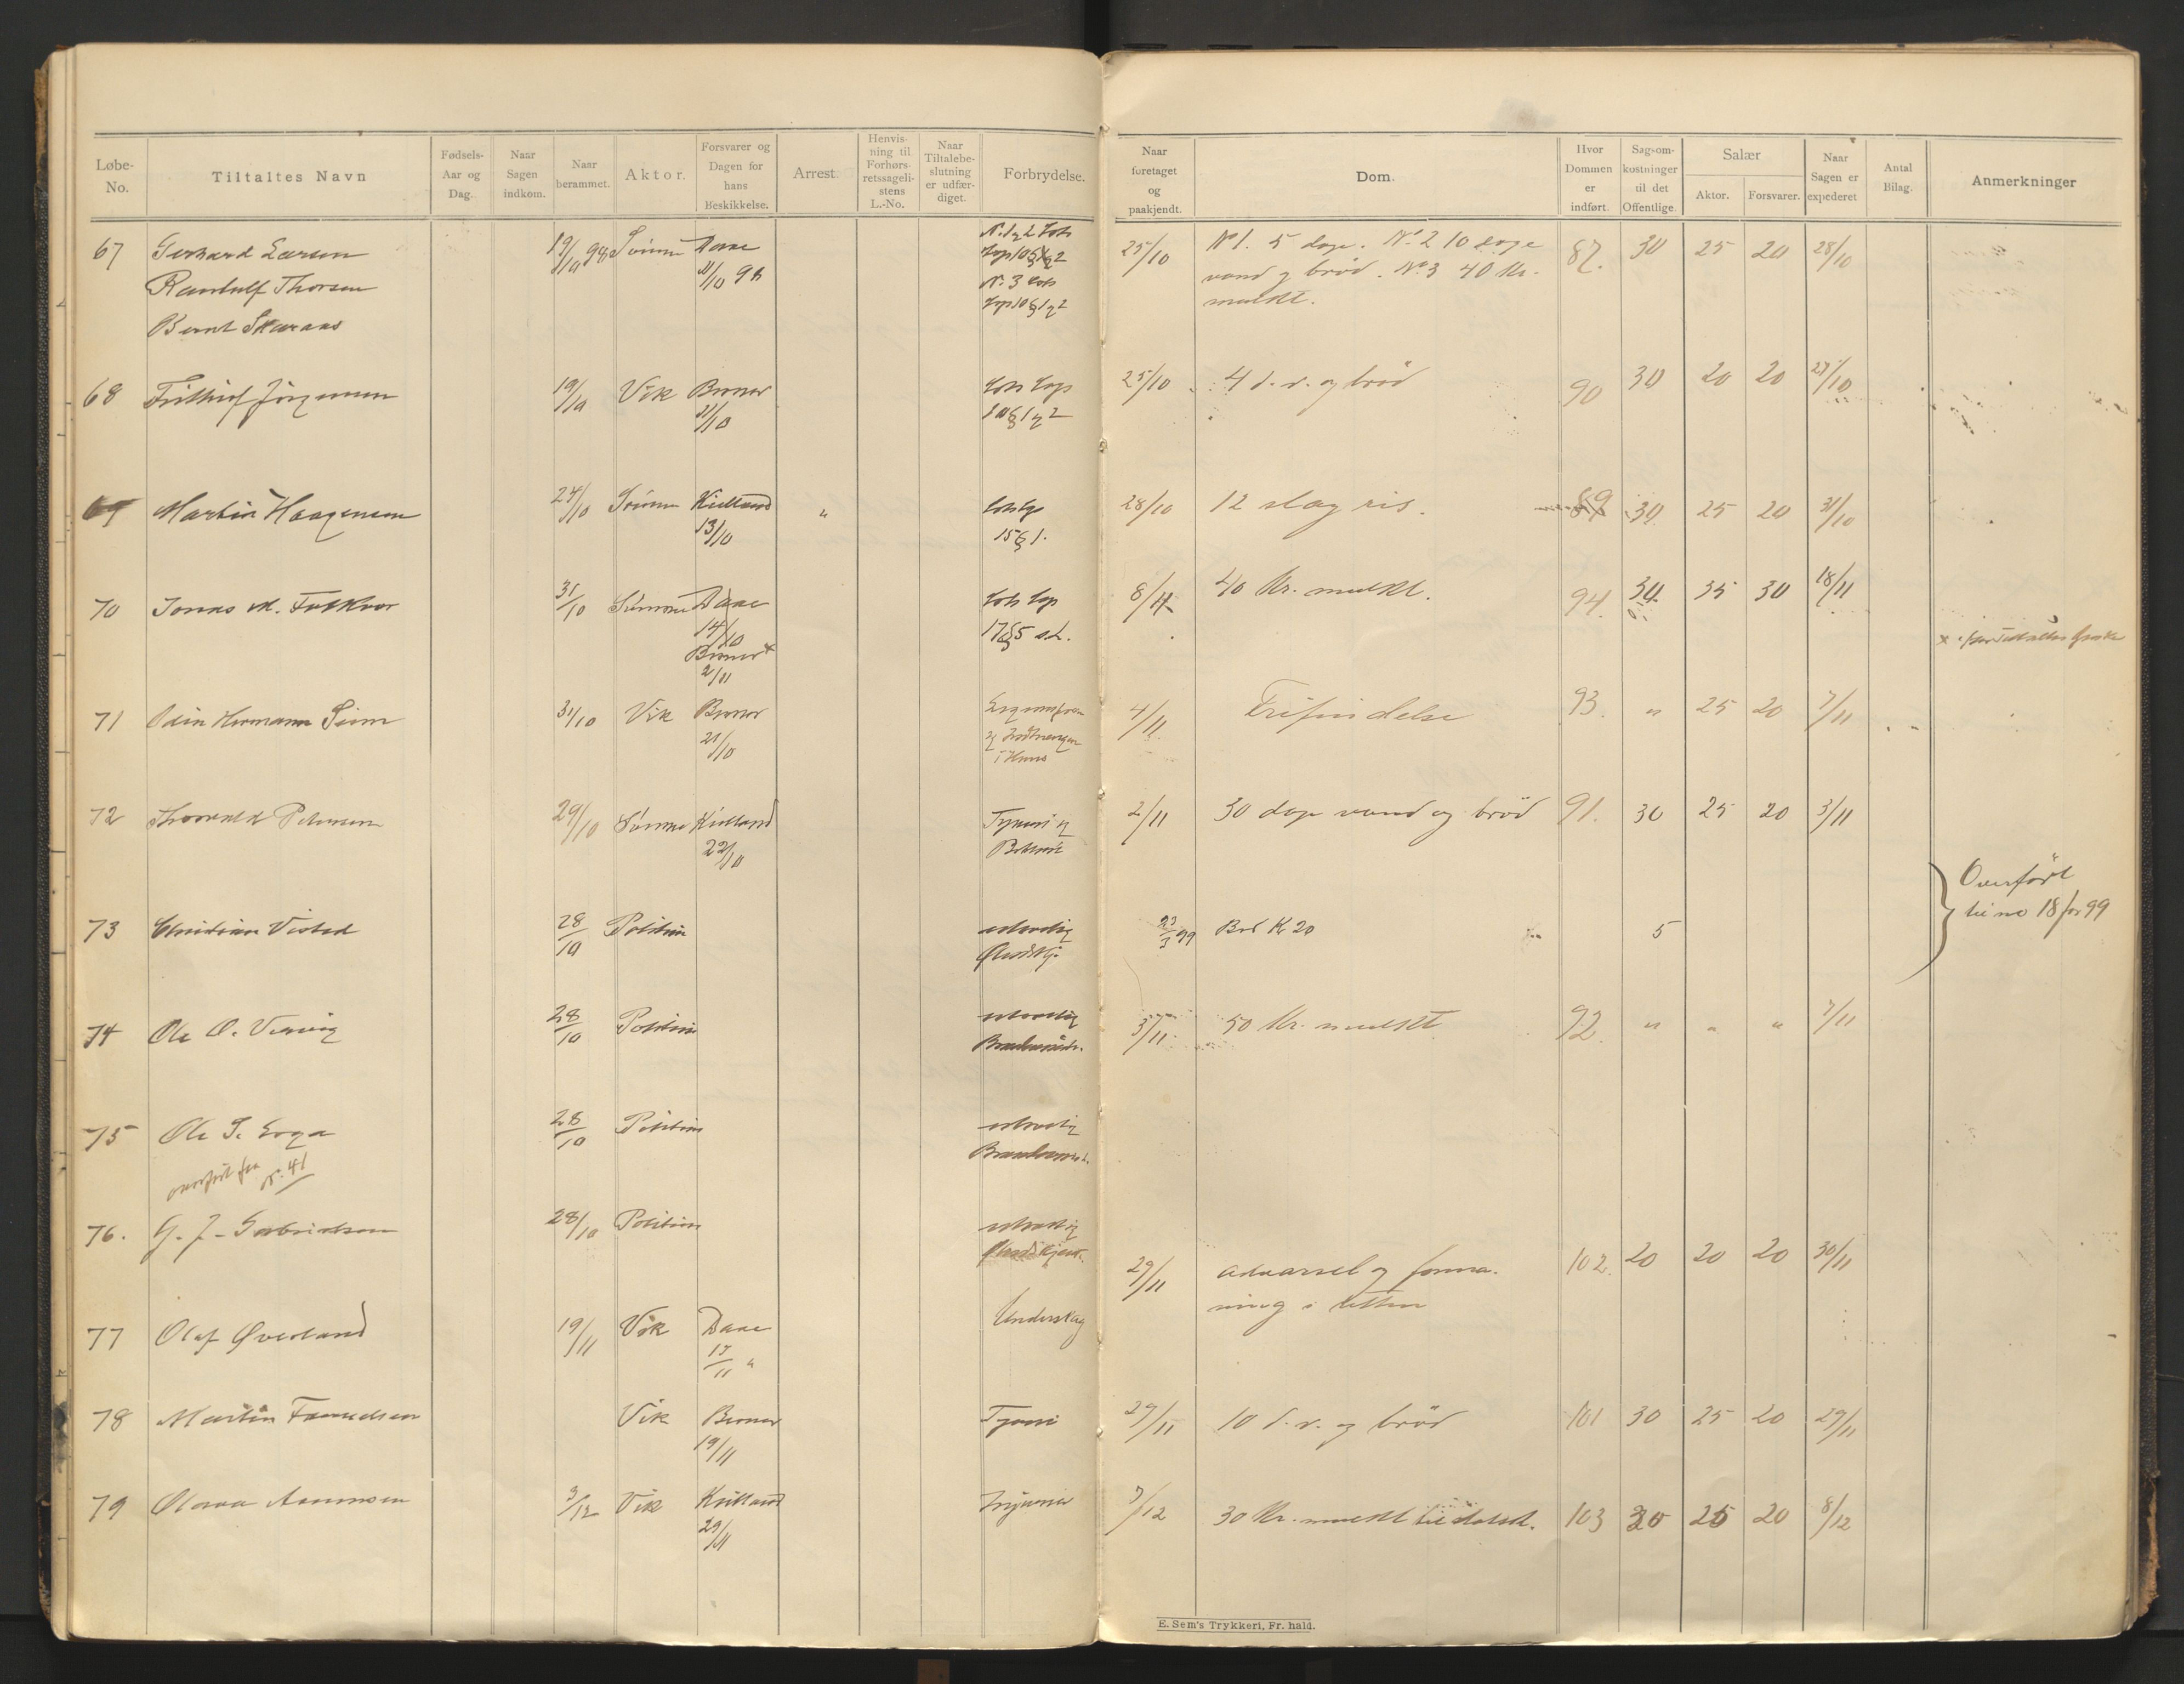 Løbe-No.
Tiltaltes Navn
Fødsels-Aar og Dag.
Naar Sagen indkom.
Naar berammet.
Aktor.
Forsvarer og Dagen for hans Beskikkelse.
Arrest.
Henvisning til Forhørsretssagelistens L.-No.
Naar Tiltalebeslutning er udfærdiget.
Forbrydelse.
Naar foretaget og paakjendt.
Dom.
Hvor Dommen er indført.
Sagsomkostninger til det Offentlige.
Salær
Aktor.
Forsvarer.
Naar Sagen er expederet
Antal Bilag.
Anmerkninger
67 Gerhard Larsen 19/10 98 Sömme Daae 25/10 No 1. 5 dage. No 2 10 dage 87. 30 25 20 28/10
Randulf Thorsen 11/10 98 vand og bröd. No 3 40 Kr.
Bernt Skaraas mulkt.
68 Frithiof Jörgensen 19/10 Vik Berner 25/10 4 d. v. og bröd 90 30 20 20 27/10
11/10 10 § 1 og 2
69 Martin Haagensen 24/10 Sömme Kielland " 28/10 12 slag ris. 89 30 25 20 31/10
13/10 15 § 1.
70 Jonas M. 31/10 Sömme Daae 8/11 40 Kr. mulkt. 94. 30 35 30 18/11
14/10 17 § 5
Berner x
2/11
71 Odin Hermann 31/10 Vik Berner 4/11 Frifindelse 93. " 25 20 7/11
21/10
72 Thorvald Petersen 29/10 Sömme Kielland Tyveri og 2/11 30 dage vand og bröd 91. 30 25 20 3/11
22/10
73 Christian Visted 28/10 Politiet ulovlig 23/3 99 Bod Kr 20 5 Overfört
til no 18 for 99
74 Ole O. 28/10 Politiet ulovlig 3/11 50 Kr. mulkt 92. " " " 7/11
75 Ole S. 28/10 Politiet ulovlig
overfört fra no. 41
76. G. J. Gabrielsen 28/10 Politiet ulovlig
77 Olaf Øverland 19/11 Vik Daae Underslag 29/11 advarsel og forma- 102. 20 20 20 30/11
17/11 ning i retten
78 Martin Vik Berner Tyveri 29/11 10 d. v. og bröd 101 30 25 20 29/11
19/11
79 Olava Aanensen 3/12 Vik Kielland Injurier 7/12 30 Kr. mulkt til 103 30 25 20 8/12
29/11
E. Sem's Trykkeri, Fr. hald.